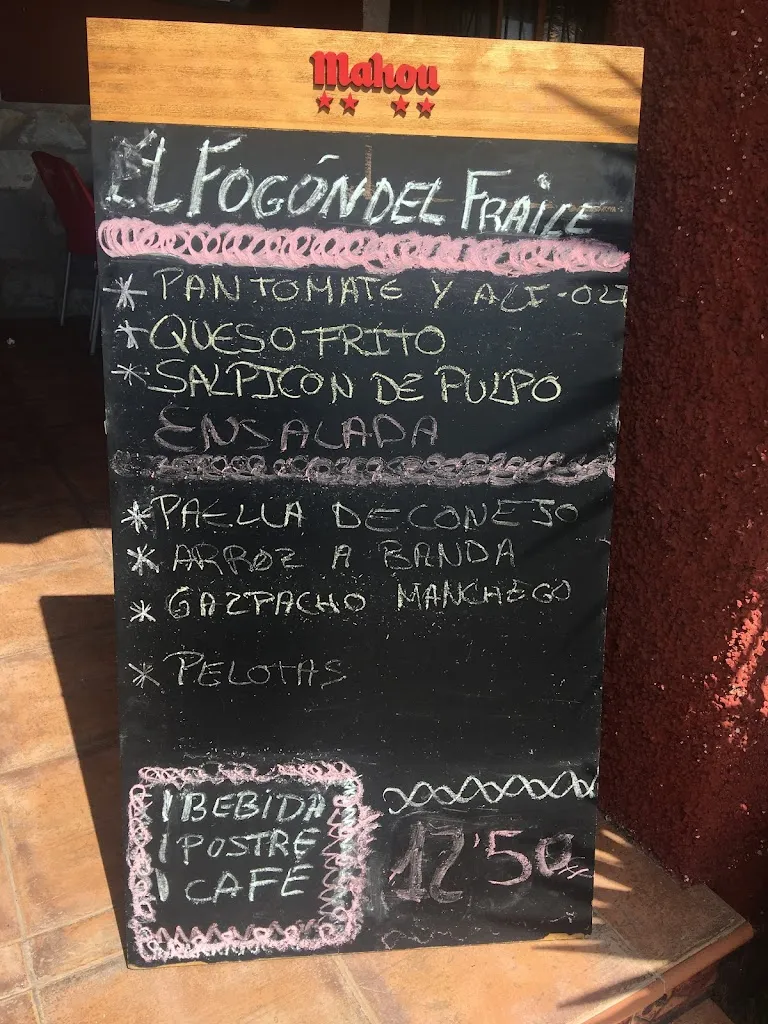 Mahou
EL FOGÓN DEL FRAILE
* PAN TOMATE Y ALI-OLI
* QUESO FRITO
* SALPICON DE PULPO
ENSALADA
* PAELLA DE CONEJO
* ARROZ A BANDA
* GAZPACHO MANCHEGO
* PELOTAS
1 BEBIDA
1 POSTRE
1 CAFÉ
12'50